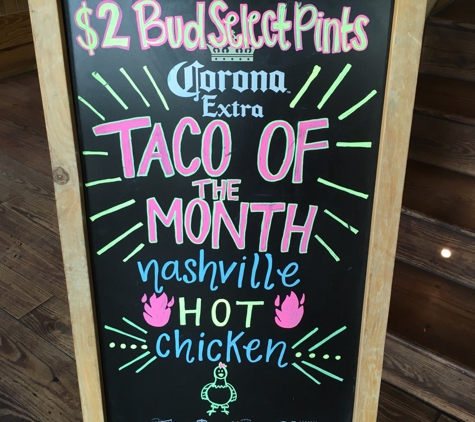 $2 Bud Select Pints
Corona
Extra
TACO OF
THE
MONTH
nashville
HOT
chicken